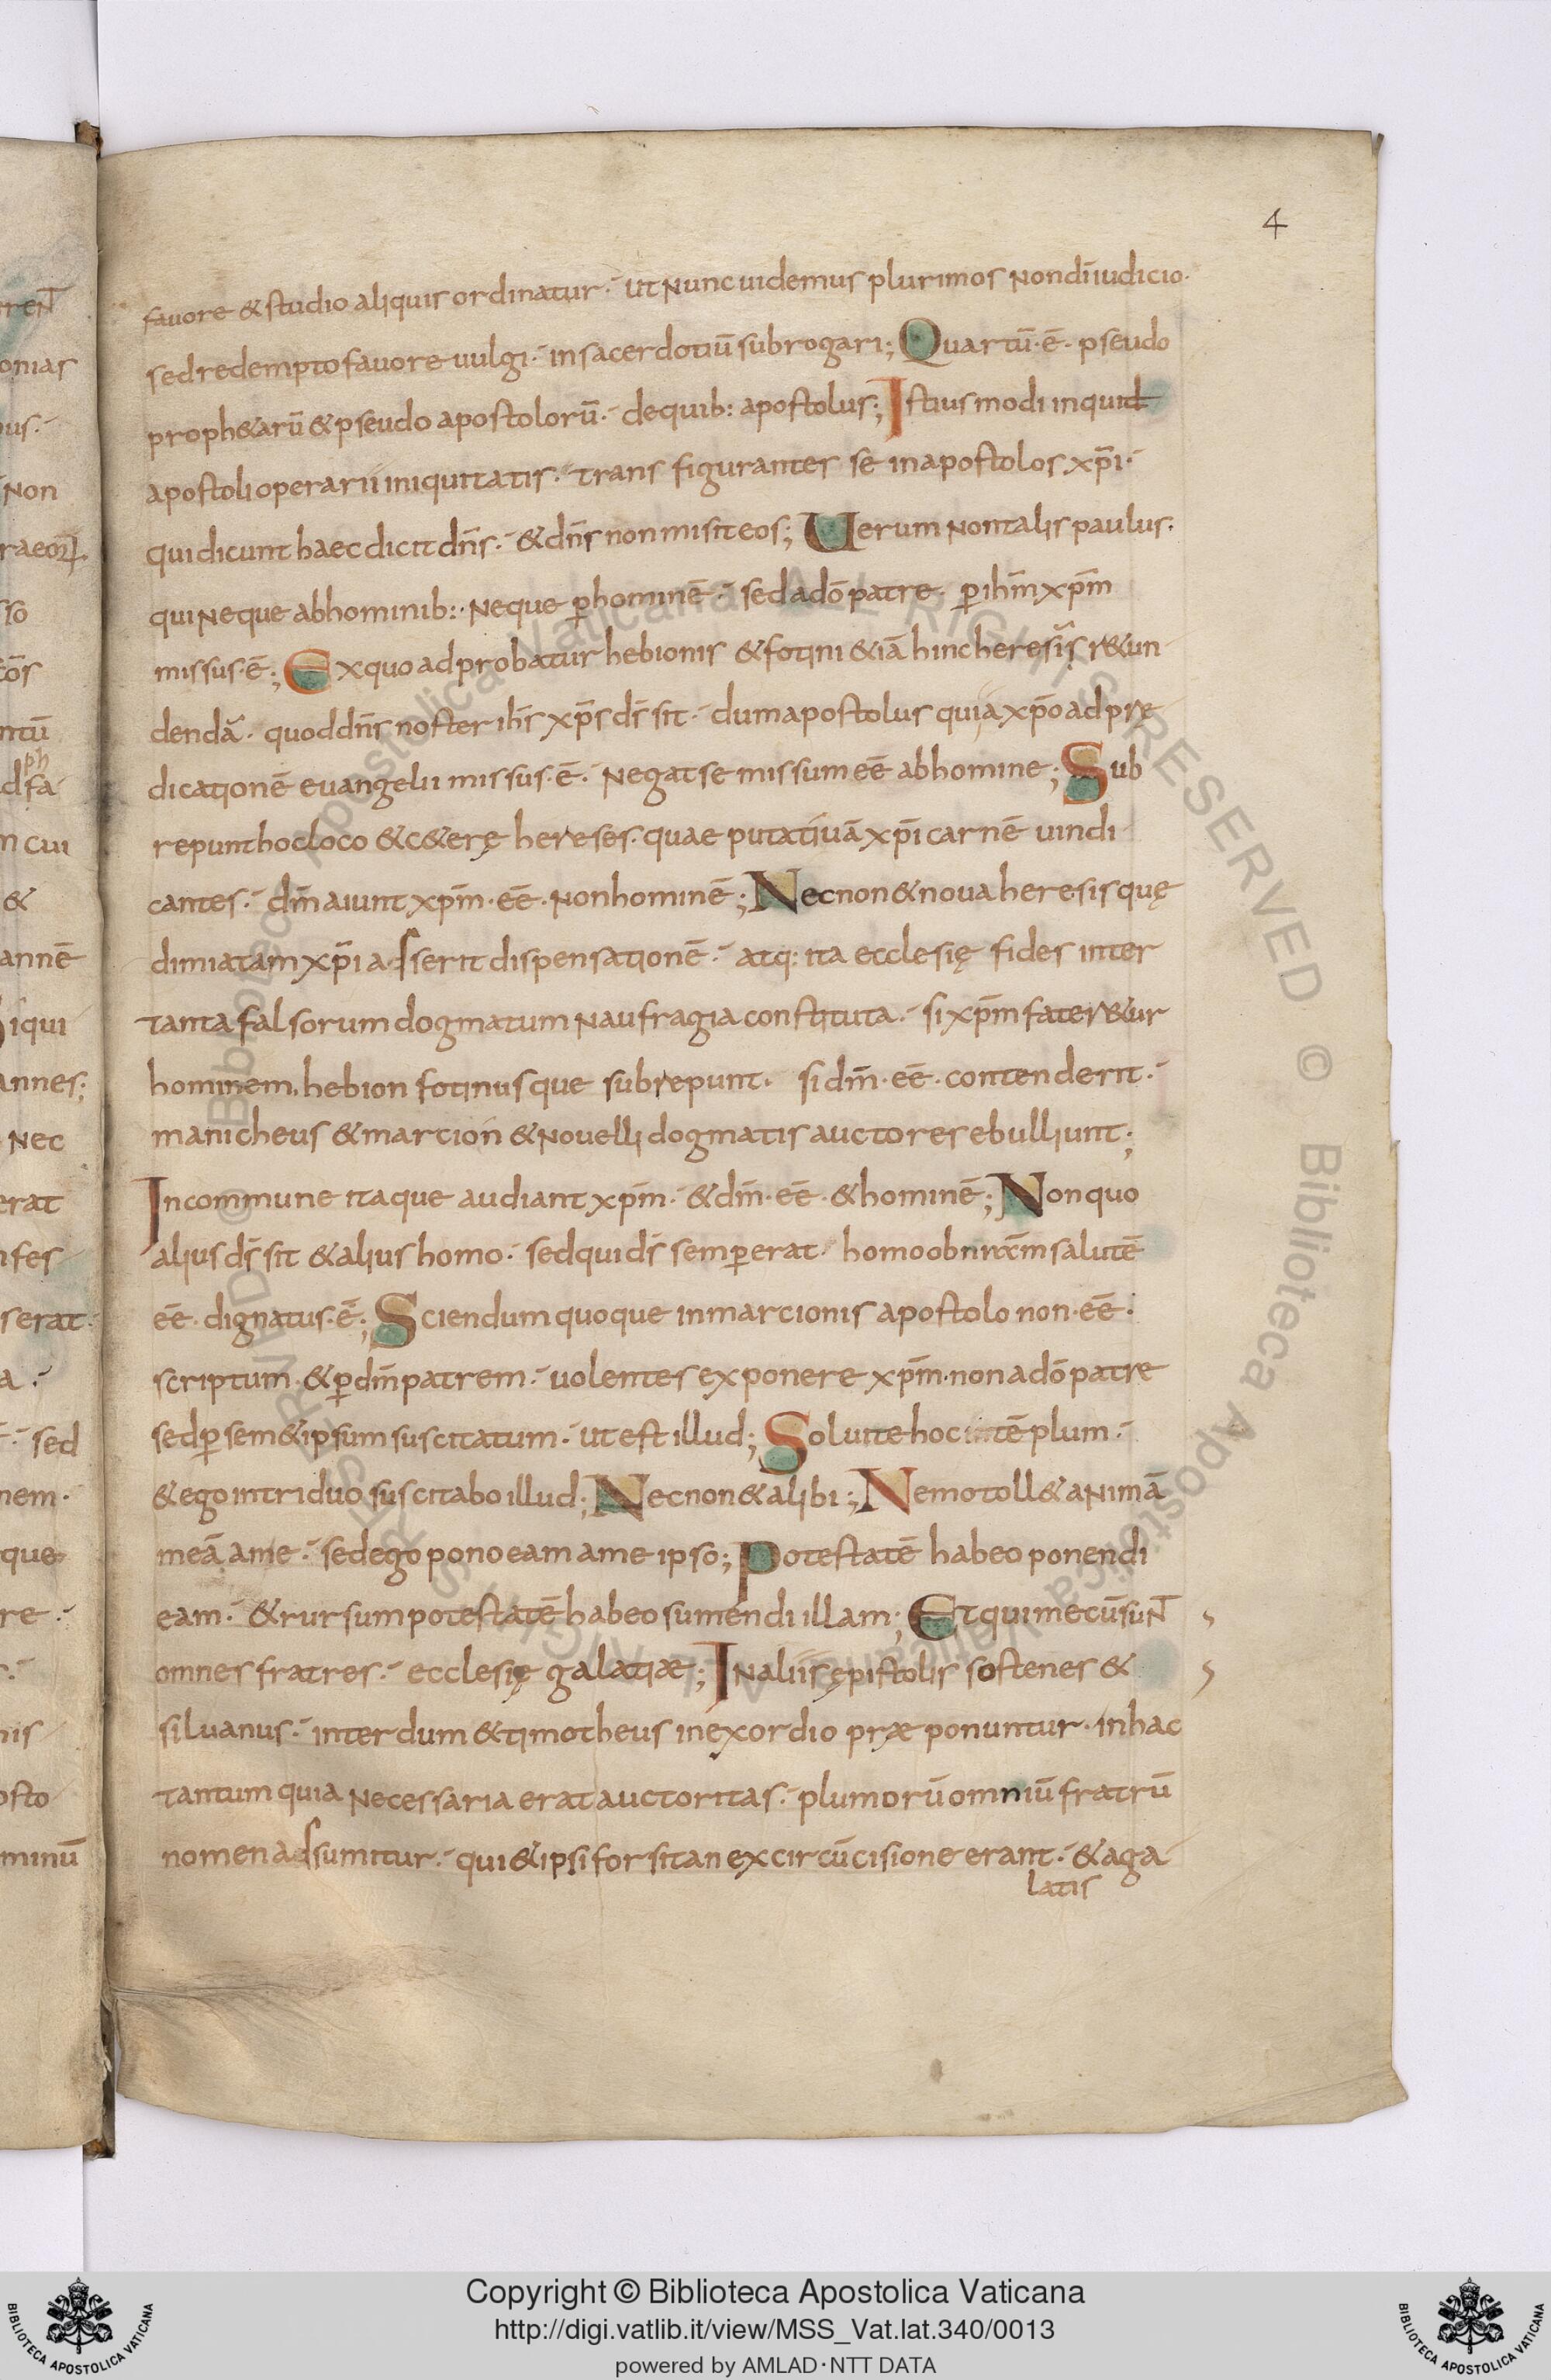 4
favore & studio aliquis ordinatur· ut nunc uidemus plurimos non di iudicio·
sed redempto fauore uulgi· in sacerdotiū subrogari; Quartū·ē· pseudo
proph&arū & pseudo apostolorū· de quib: apostolus; Istius modi inquid
apostoli operarii iniquitatis· trans figurantes se in apostolos xp̄i·
qui dicunt haec dicit dn̄s· & dn̄s non misit eos; Uerum non talis paulus·
qui neque ab hominib:· neque p̲ hominē· sed a dō patre· p̲ ih̄m xp̄m
missus·ē; Ex quo adprobatur hebionis & fotini &iā hinc heresis r&un
dendā· quod dn̄s noster ih̄s xp̄s ds̄ sit· dum apostolus qui a xp̄o ad prę
dicationē euangelii missus·ē· negat se missum eē ab homine; Sub
repunt hoc loco & c&erę hereses· quae putatiuā xp̄i carnē uindi
cantes· dm̄ aiunt xp̄m·eē·non hominē; Nec non & noua heresis quę
dimiatam xp̄i adserit dispensationē· atq: ita ecclesię fides inter
tanta falsorum dogmatum naufragia constituta· si xp̄m fater&ur
hominem, hebion fotinus que subrepunt· si dm̄·eē·contenderit·
manicheus & marcion & nouelli dogmatis auctores ebulliunt;
In commune itaque audiant xp̄m· & dm̄·eē·& hominē; Non quo
alius ds̄ sit & alius homo· sed qui ds̄ semp̲ erat· homo ob nr̄am salutē
eē· dignatus·ē; Sciendum quoque in marcionis apostolo non·eē·
scriptum· & p̲ dm̄ patrem· uolentes exponere xp̄m·non a dō patre
sed p̲ sem&ipsum suscitatum· ut est illud; Soluite hoc tēplum·
& ego in triduo suscitabo illud; Nec non & alibi; Nemo toll& animā
meā a me· sed ego pono eam a me ipso; Potestatē habeo ponendi
eam· & rursum potestatē habeo sumendi illam; Et qui mecū sunt
omnes fratres· ecclesię galatiæ; In aliis ępistolis sostenes &
siluanus· interdum & timotheus in exordio præponuntur· in hac
tantum quia necessaria erat auctoritas· plumorū omniū fratrū
nomen adsumitur· qui & ipsi forsitan ex circūcisione erant· & a ga
latis
Copyright © Biblioteca Apostolica Vaticana
http://digi.vatlib.it/view/MSS_Vat.lat.340/0013
powered by AMLAD·NTT DATA